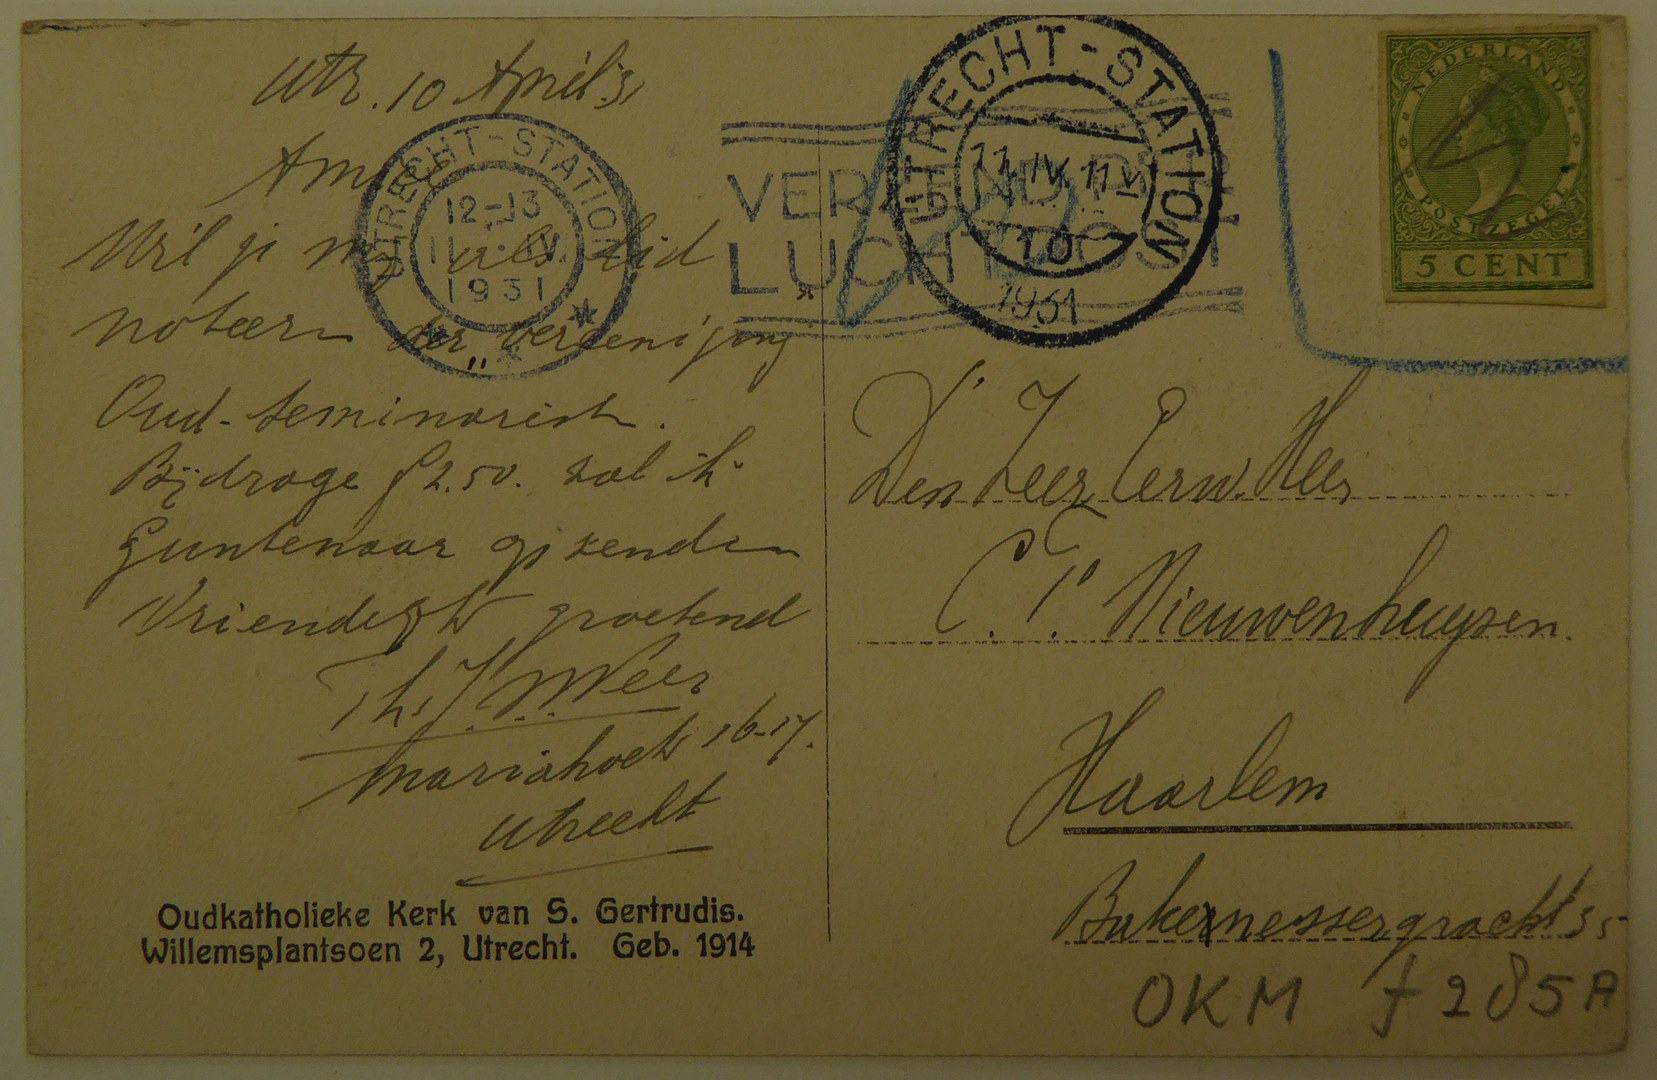 Utr. 10 April '31
Amice
Wil je mij als lid
noteeren der „Vereeniging
Oud-seminarist.
Bijdrage f 2.50. zal ik
Guntenaar
Vriendelijk groetend
Th. J. M. Weer
Mariahoek 16-17.
Utrecht
Oudkatholieke Kerk van S. Gertrudis.
Willemsplantsoen 2, Utrecht. Geb. 1914
UTRECHT-STATION
12-13
11.IV.
1931
VERZENDT PER
LUCHTPOST
UTRECHT-STATION
11.IV.11V
10
1931
NEDERLAND
POSTZEGEL
5 CENT
Den Zeer Eerw. Heer
C. T. Nieuwenhuyzen
Haarlem
Bakenessergracht
OKM f 285A